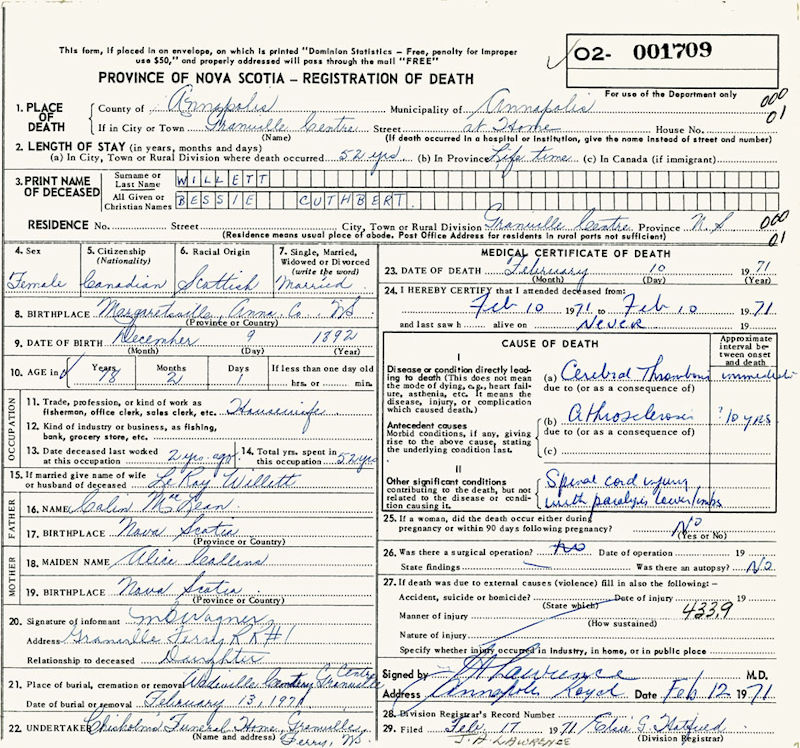 This form, if placed in an envelope, on which is printed "Dominion Statistics – Free, penalty for improper
use $50," and properly addressed will pass through the mail "FREE"
PROVINCE OF NOVA SCOTIA – REGISTRATION OF DEATH
02- 001709
For use of the Department only
1. PLACE OF DEATH
County of Annapolis Municipality of Annapolis 000
If in City or Town Granville Centre Street at Home House No. 01
(Name) (If death occurred in a hospital or institution, give the name instead of street and number)
2. LENGTH OF STAY (in years, months and days)
(a) In City, Town or Rural Division where death occurred 52 yrs (b) In Province Life time (c) In Canada (if immigrant)
3. PRINT NAME OF DECEASED
Surname or Last Name WILLETT
All Given or Christian Names BESSIE CUTHBERT.
RESIDENCE No. Street City, Town or Rural Division Granville Centre Province N.S 000
(Residence means usual place of abode. Post Office Address for residents in rural parts not sufficient) 01
4. Sex
Female
5. Citizenship
(Nationality)
Canadian
6. Racial Origin
Scottish
7. Single, Married, Widowed or Divorced
(write the word)
Married
8. BIRTHPLACE Margaretsville, Anna. Co., NS
(Province or Country)
9. DATE OF BIRTH December 9 1892
(Month) (Day) (Year)
10. AGE in Years 78 Months 2 Days 1 If less than one day old
hrs. or min.
OCCUPATION
11. Trade, profession, or kind of work as
fisherman, office clerk, sales clerk, etc. Housewife
12. Kind of industry or business, as fishing,
bank, grocery store, etc.
13. Date deceased last worked
at this occupation 2 yrs. ago
14. Total yrs. spent in
this occupation 52 yrs
15. If married give name of wife
or husband of deceased LeRoy Willett
FATHER
16. NAME Colin McLean
17. BIRTHPLACE Nova Scotia
(Province or Country)
MOTHER
18. MAIDEN NAME Alice
19. BIRTHPLACE Nova Scotia
(Province or Country)
20. Signature of informant Wagner
Address Granville Ferry RR#1
Relationship to deceased Daughter
21. Place of burial, cremation or removal Cemetery Granville Centre
Date of burial or removal February 13, 1971
22. UNDERTAKER Chisholm's Funeral Home, Granville
(Name and address) Ferry, NS
MEDICAL CERTIFICATE OF DEATH
23. DATE OF DEATH February 10 1971
(Month) (Day) (Year)
24. I HEREBY CERTIFY that I attended deceased from:
Feb 10 1971 to Feb 10 1971
and last saw h alive on Never 19
CAUSE OF DEATH
Approximate interval between onset and death
I
Disease or condition directly leading to death (This does not mean the mode of dying, e.g., heart failure, asthenia, etc. It means the disease, injury, or complication which caused death.)
(a) Cerebral Thrombosis immediate
due to (or as a consequence of)
Antecedent causes
Morbid conditions, if any, giving rise to the above cause, stating the underlying condition last.
(b) Arthrosclerosis ?10 yrs
due to (or as a consequence of)
(c)
II
Other significant conditions
contributing to the death, but not related to the disease or condition causing it.
Spinal cord injury
with paralysis lower limbs
25. If a woman, did the death occur either during
pregnancy or within 90 days following pregnancy? No
(Yes or No)
26. Was there a surgical operation? no Date of operation 19
State findings — Was there an autopsy? No
27. If death was due to external causes (violence) fill in also the following:–
Accident, suicide or homicide? Date of injury 19
(State which)
Manner of injury 433.9
(How sustained)
Nature of injury
Specify whether injury occurred in industry, in home, or in public place
Signed by J A Lawrence M.D.
Address Annapolis Royal Date Feb 12 1971
28. Division Registrar's Record Number
29. Filed Feb. 17 1971 Elsie G.
J.A LAWRENCE (Division Registrar)